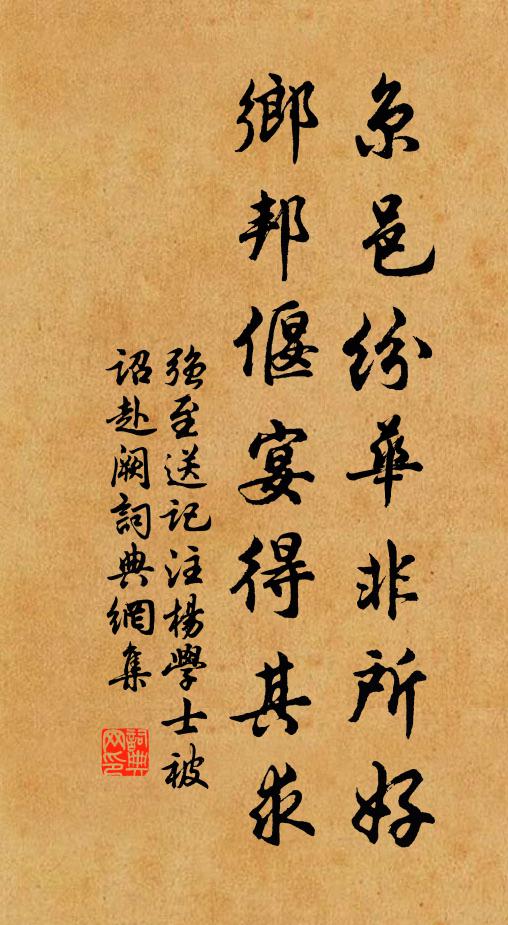 京邑紛華非所好
鄉邦偃宴得其求
強至送記注楊學士被
詔赴闕詞典網集
詞典
网印